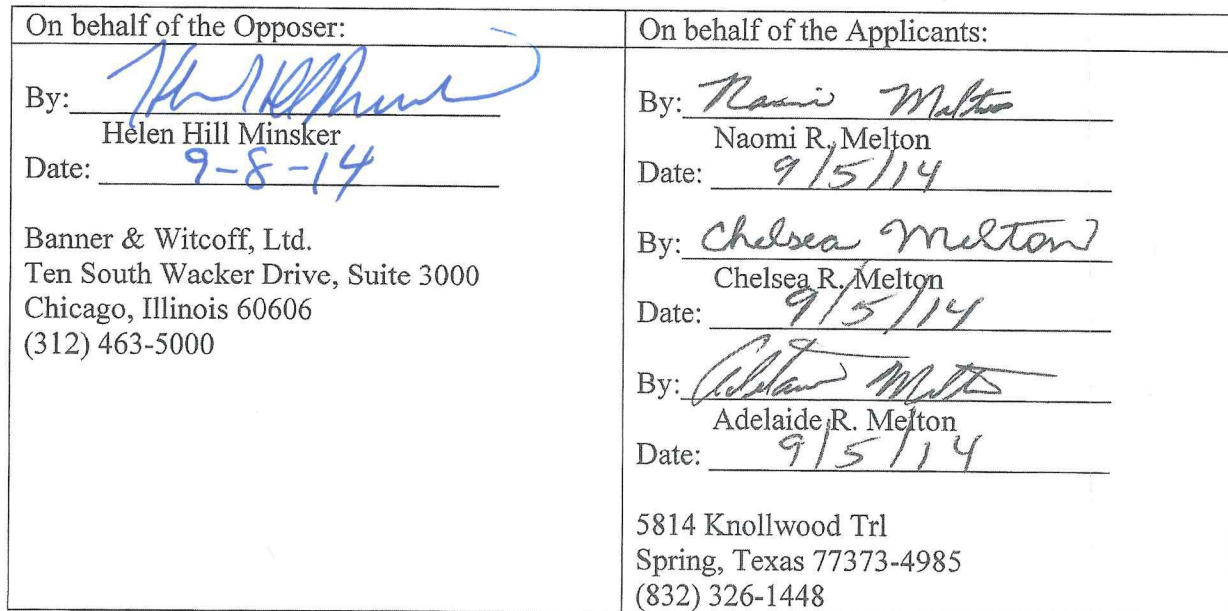 On behalf of the Opposer:
By: Helen Hill Minsker
Helen Hill Minsker
Date: 9-8-14
Banner & Witcoff, Ltd.
Ten South Wacker Drive, Suite 3000
Chicago, Illinois 60606
(312) 463-5000
On behalf of the Applicants:
By: Naomi Melton
Naomi R. Melton
Date: 9/5/14
By: Chelsea Melton
Chelsea R. Melton
Date: 9/5/14
By: Adelaide Melton
Adelaide R. Melton
Date: 9/5/14
5814 Knollwood Trl
Spring, Texas 77373-4985
(832) 326-1448